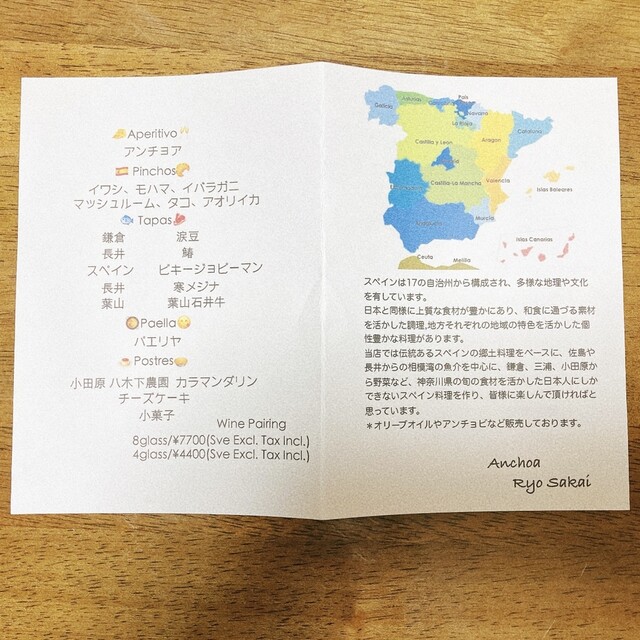 Aperitivo
アンチョア
Pinchos
イワシ、モハマ、イバラガニ
マッシュルーム、タコ、アオリイカ
Tapas
鎌倉 涙豆
長井 鰆
スペイン ピキージョピーマン
長井 寒メジナ
葉山 葉山石井牛
Paella
パエリヤ
Postres
小田原 八木下農園 カラマンダリン
チーズケーキ
小菓子
Wine Pairing
8glass/¥7700(Sve Excl. Tax Incl.)
4glass/¥4400(Sve Excl. Tax Incl.)
Galicia
Asturias
País
Navarra
La Rioja
Cataluna
Castilla y Leon
Aragon
Castilla-La Mancha
Valencia
Islas Baleares
Murcia
Islas Canarias
Ceuta
Melilla
スペインは17の自治州から構成され、多様な地理や文化
を有しています。
日本と同様に上質な食材が豊かにあり、和食に通づる素材
を活かした調理,地方それぞれの地域の特色を活かした個
性豊かな料理があります。
当店では伝統あるスペインの郷土料理をベースに、佐島や
長井からの相模湾の魚介を中心に、鎌倉、三浦、小田原か
ら野菜など、神奈川県の旬の食材を活かした日本人にしか
できないスペイン料理を作り、皆様に楽しんで頂ければと
思っています。
＊オリーブオイルやアンチョビなど販売しております。
Anchoa
Ryo Sakai